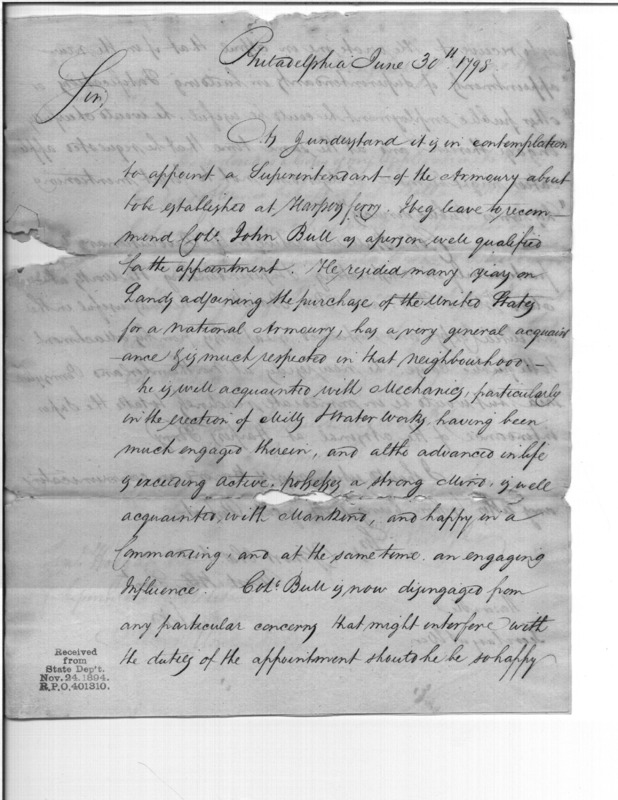 Philadelphia June 30th 1798
Sir,
As I understand it is in contemplation
to appoint a Superintendant of the Armoury about
to be established at Harpers ferry. I beg leave to recom-
mend Colo. John Bull as a person well qualified
for the appointment. He resided many years on
Lands adjoining the purchase of the United States
for a National Armoury, has a very general acquaint
-ance & is much respected in that neighbourhood.-
he is well acquainted with Mechanics, particularly
in the erection of Mills & Water Works, having been
much engaged therein, and altho advanced in life
is exceeding active, possesses a strong Mind, is well
acquainted, with Mankind, and happy in a
Commanding, and at the same time an engaging
Influence. Colo. Bull is now disengaged from
any particular concerns that might interfere with
the duties of the appointment should he be so happy
Received
from
State Dep't.
Nov. 24. 1894.
R.P.O. 401310.